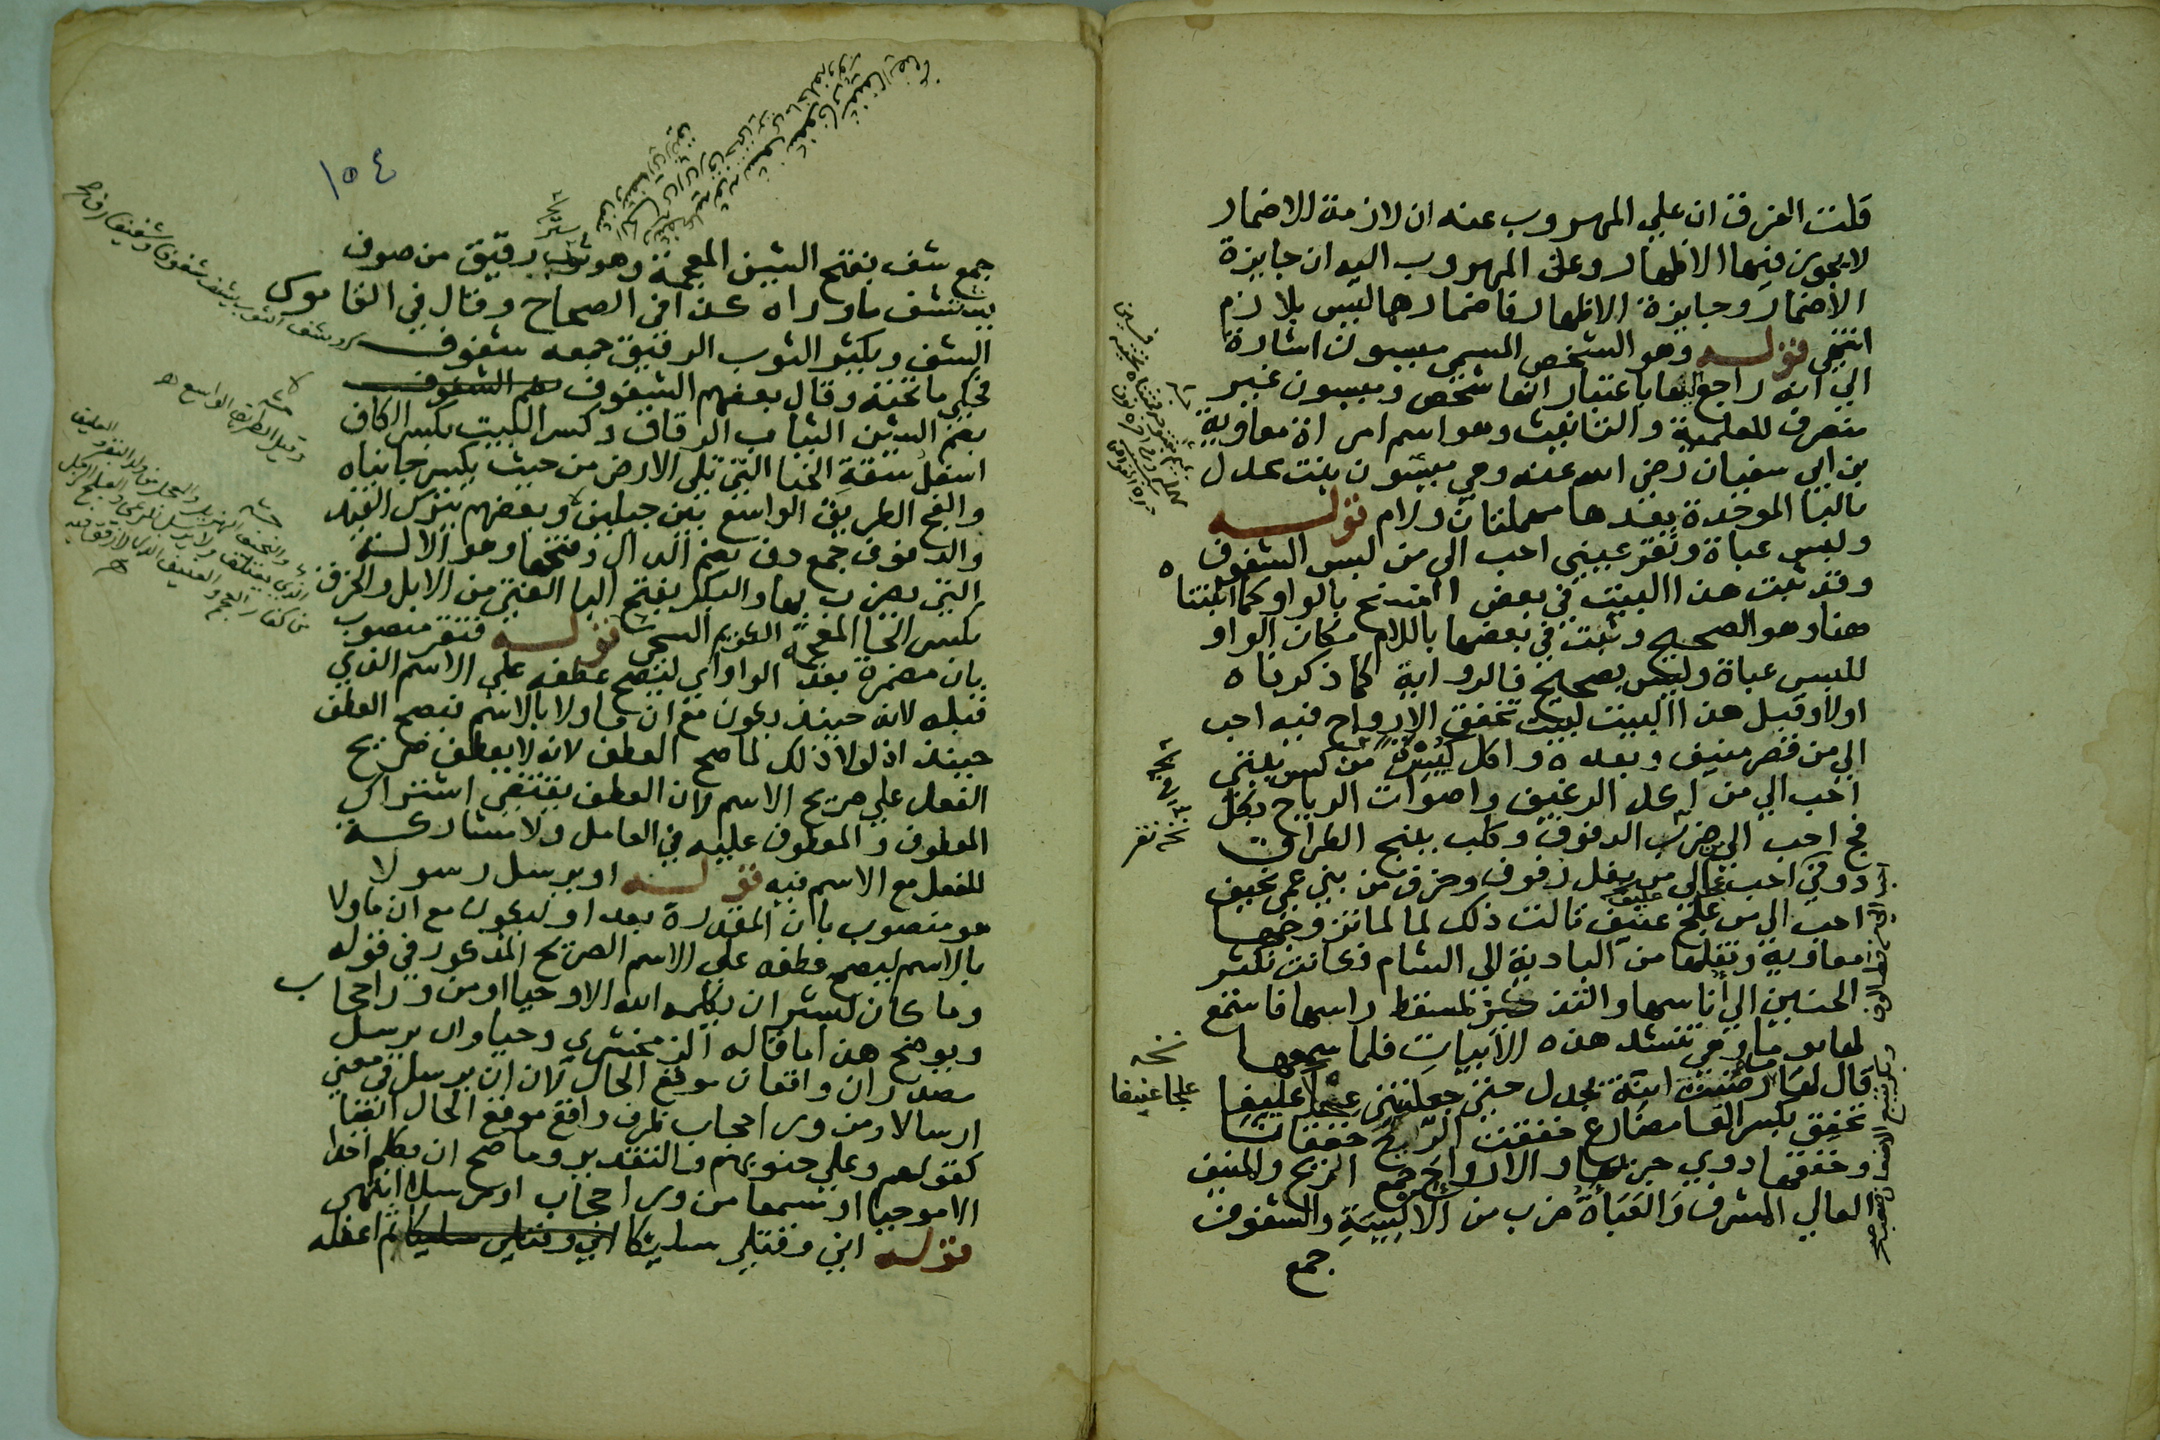 قلت الفرق ان علي المهروب عنه ان لازمة الاضمار
لا يجوز فيها الاظهار وعلى المهروب اليه ان جايزة
الاضمار وجايزة الاظهار فاضمارها ليس بلازم
انتهي قوله وهو الشخص المسمي ميسون اشارة
الي انه راجع لها باعتبار انها شخص وميسون غير
منصرف للعلمية والتانيث وهو اسم امراة معاوية
بن ابي سفيان رضي الله عنه وهي ميسون بنت بحدل
بالبا الموحدة بعدها مهملتان ولام قوله
ولبس عباة وتقر عيني احب الي من لبس الشفوف
وقد ثبت هذا البيت في بعض النسخ بالواو كما اثبتناه
هنا وهو الصحيح وثبت في بعضها باللام مكان الواو
للبس عباة وليس بصحيح فالرواية كما ذكرناه
اولا وقبل هذا البيت لبيت تخفق الارواح فيه احب
الي من قصر منيف وبعده واكل كسيرة من كسر بيتي
احب الي من اكل الرغيف واصوات الرياح بكل
فج احب الي من ضرب الدفوف وكلب ينبح الطراق
دوني احب الي من بغل زفوف وخرق من بني عمي نحيف
احب الي من علج عنيف قالت ذلك لما تزوجها
معاوية ونقلها من البادية الي الشام فكانت تكثر
الحنين الي اناسها والتذكر لمسقط راسها فاستمع
لها يوما وهي تنشد هذه الابيات فلما سمعها
قال لها ما رضيت ابنة بحدل حتي جعلتني علجا عليفا
تخفق بكسر الفا مضارع خفقت الريح خفقانا
وخفقها دوي جريها والارواح جمع الريح والمنيف
العالي المشرف والعباة ضرب من الاكسية والشفوف
جمع
نخه
علجا عنيفا
١٥٤
جمع شف بفتح الشين المعجمة وهو ثوب رقيق من صوف
يستشف ماوراه كذا في الصحاح وقال في القاموس
الشف ويكسر الثوب الرقيق جمعه شفوف
فحكي ما تحته وقال بعضهم الشفوف
بضم الشين الثياب الرقاق وكسر البيت بكسر الكاف
اسفل شقة الخبا التي تلي الارض من حيث يكسر جانباه
والفج الطريق الواسع بين جبلين وبعضهم يترك القيد
والدفوف جمع دف بضم الدال وفتحها وهو الالة
التي يضرب بها والبكر بفتح البا الفتي من الابل والخرق
بكسر الخا المعجمة الكريم السخي قوله فتقر منصوب
بان مضمرة بعد الواو اي ليصح عطفه علي الاسم الذي
قبله لانه حينيذ يكون مع ان ماولا بالاسم فيصح العطف
حينيذ اذ لولا ذلك لما صح العطف لانه لا يعطف صريح
الفعل علي صريح الاسم لان العطف يقتضي اشتراك
المعطوف والمعطوف عليه في العامل ولا مشاركة
للفعل مع الاسم فيه قوله او يرسل رسولا
هو منصوب بان المقدرة بعد او ليكون مع ان ماولا
بالاسم ليصح عطفه علي الاسم الصريح المذكور في قوله
وما كان لبشر ان يكلمه الله الا وحيا او من ورا حجاب
ويوضح هذا ما قاله الزمخشري وحيا وان يرسل
مصدران واقعان موقع الحال لان ان يرسل في معني
ارسالا ومن ورا حجاب ظرف واقع موقع الحال ايضا
كقولهم وعلي جنوبهم والتقدير وما صح ان يكلم احدا
الا موحيا او مسمعا من ورا حجاب او مرسلا انتهى
قوله اني وقتلي سليكا ثم اعقله
وقيل الطريق الواسع